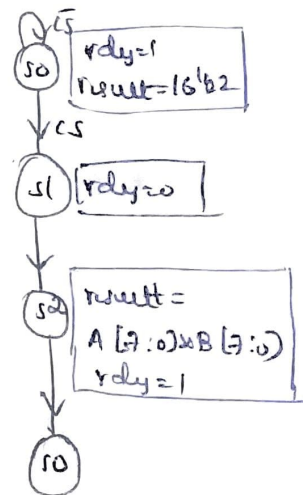 c̅s̅
s0
rdy=1
result=16'bz
cs
s1
rdy=0
s2
result=
A[7:0]xB[7:0]
rdy=1
s0